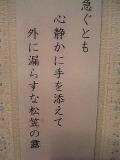 急ぐとも
心静かに手を添えて
外に漏らすな松笠の露